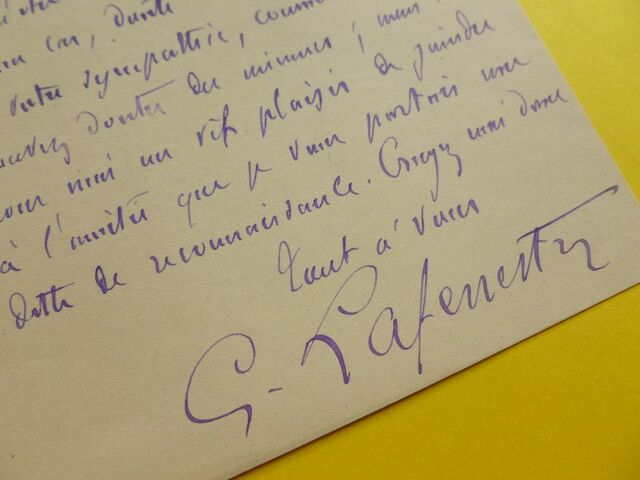 doute
votre sympathie, comme
pouvez douter des miennes ; mais
pour moi un vif plaisir de joindre
à l'amitié que je vous portais une
dette de reconnaissance. Croyez moi donc
tout à vous
G. Lafenestre